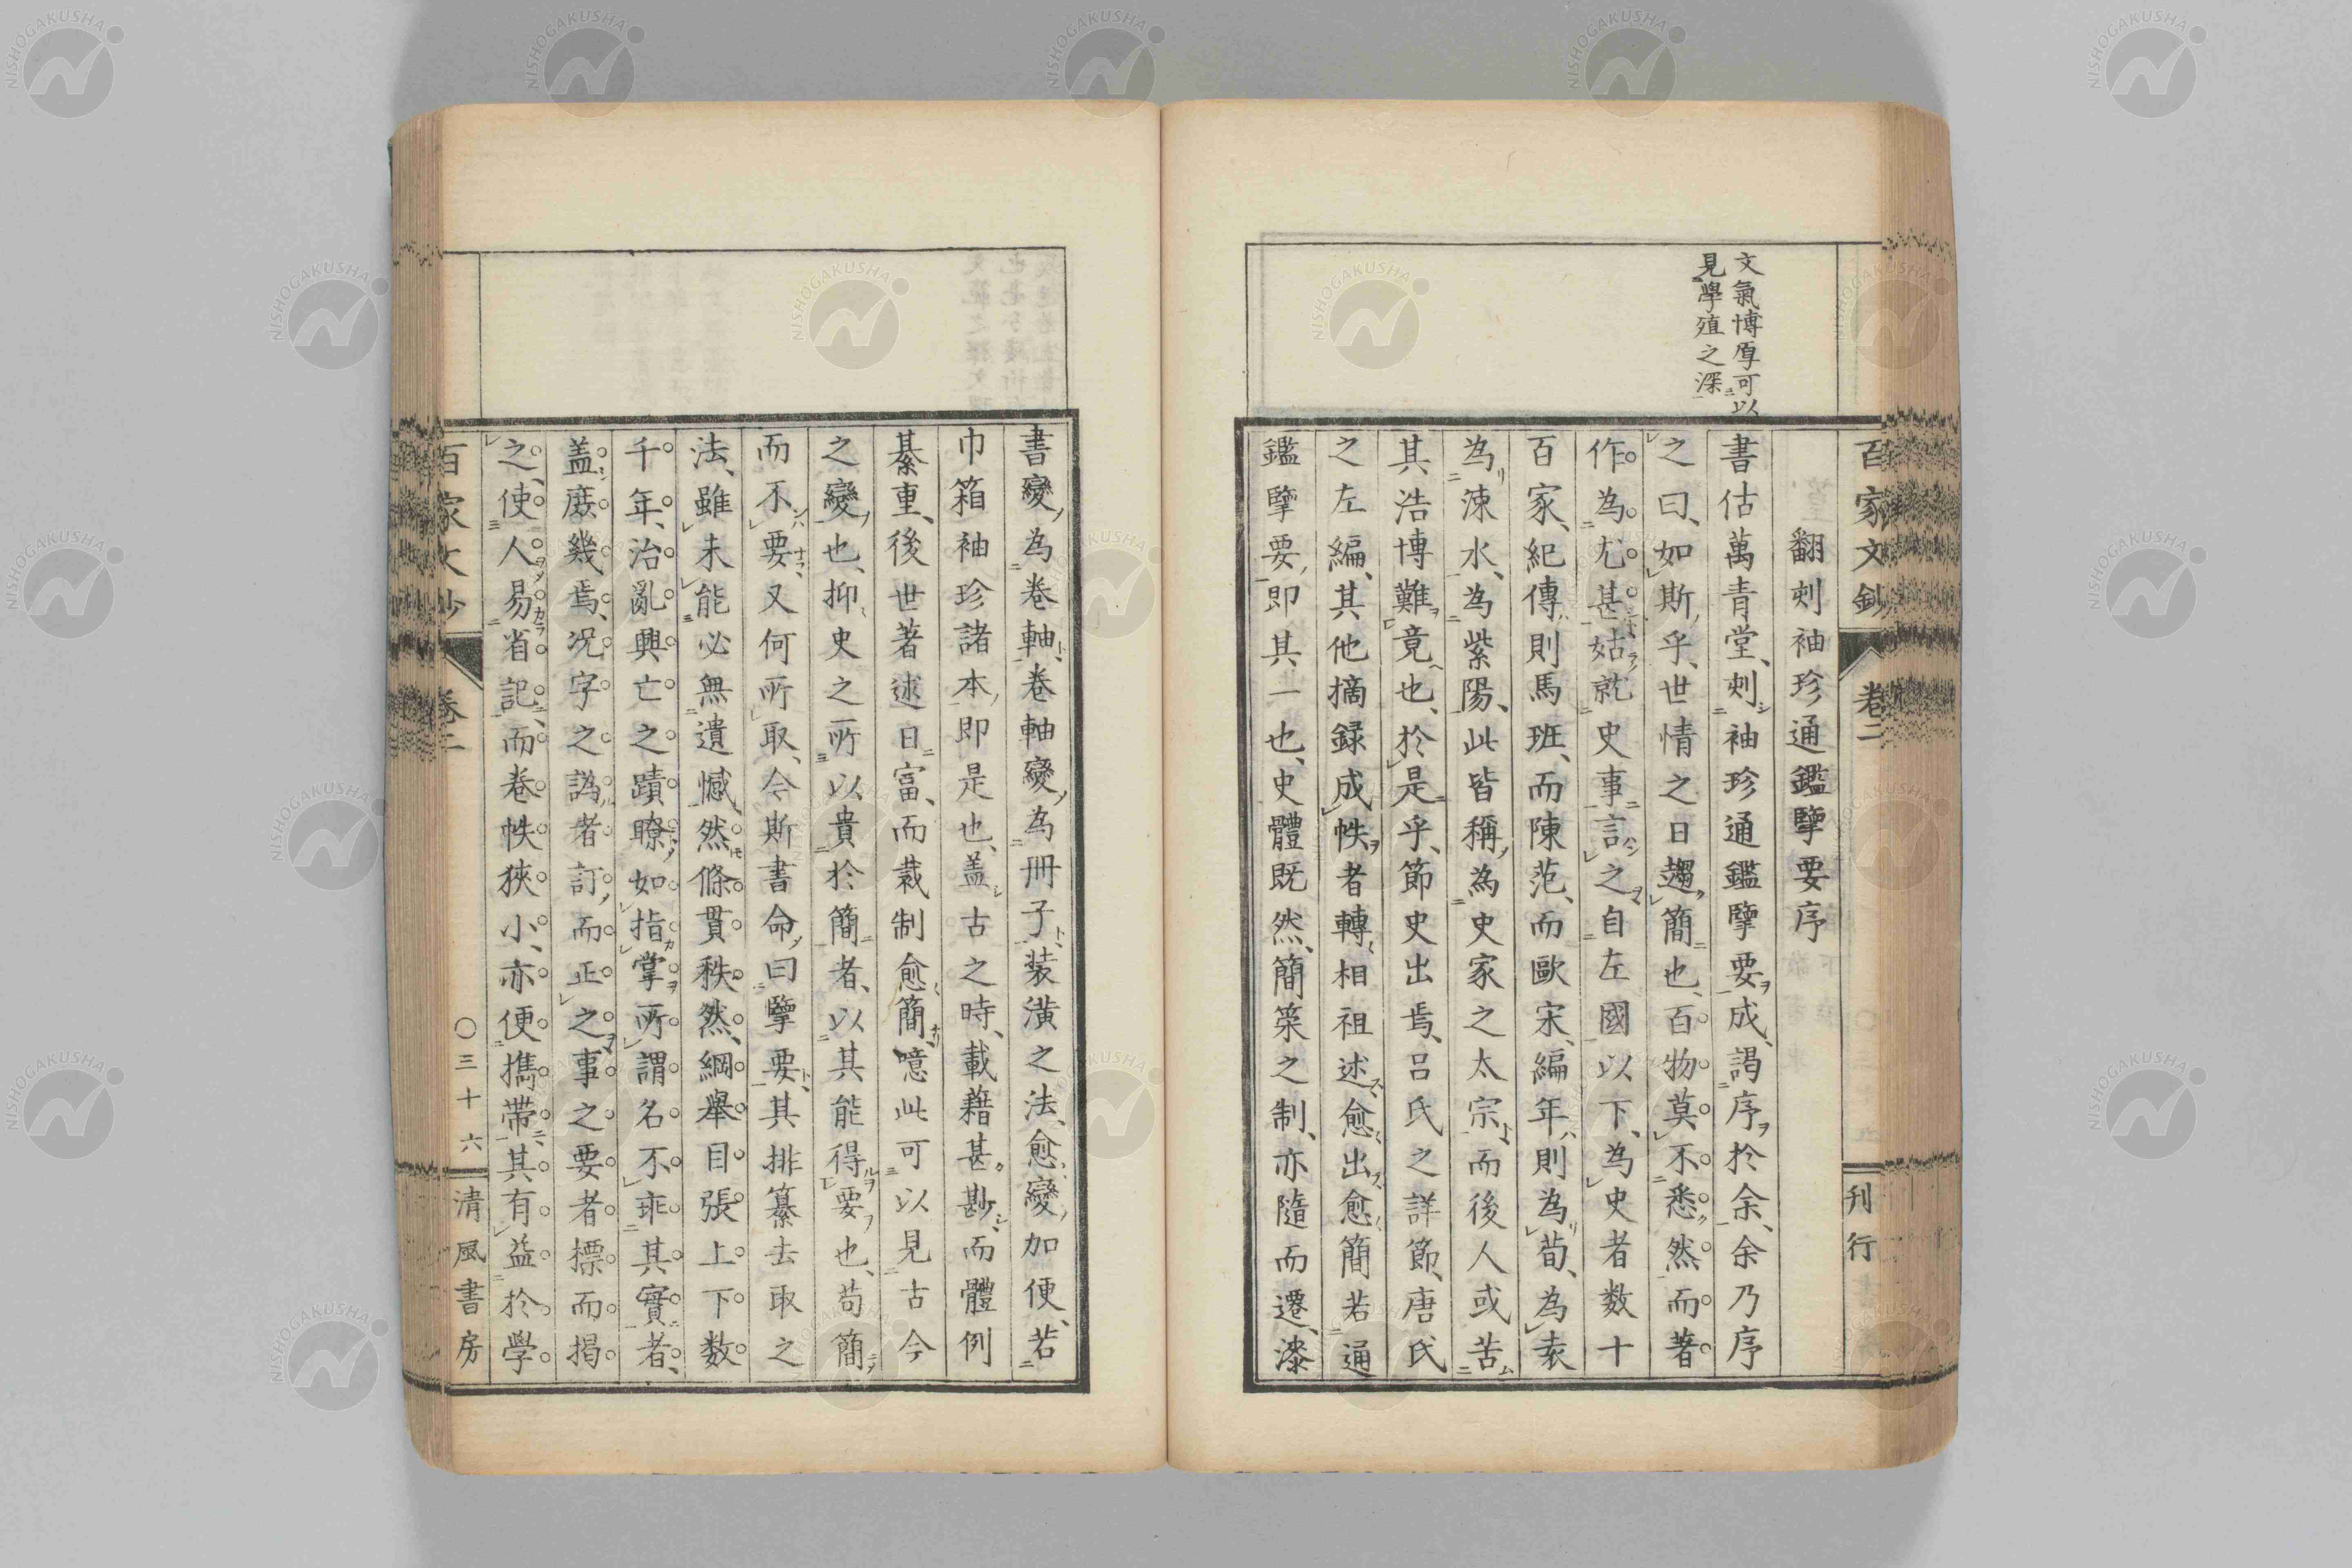 百家文鈔
卷二
刊行
文氣博厚可以
見學殖之深
翻刻袖珍通鑑擥要序
書估萬青堂、刻袖珍通鑑擥要成、謁序於余、余乃序
之曰、如斯乎、世情之日趨簡也、百物莫不悉然而著
作為尤甚姑就史事言之自左國以下、為史者数十
百家、紀傳則馬班、而陳范、而歐宋、編年則為荀、為袁
為涑水、為紫陽、此皆稱為史家之太宗、而後人或苦
其浩博難竟也、於是乎、節史出焉、呂氏之詳節、唐氏
之左編、其他摘録成帙者轉相祖述愈出愈簡若通
鑑擥要即其一也、史體既然、簡築之制、亦隨而遷、漆
書變為卷軸、卷軸變為冊子、装潢之法、愈變加便、若
巾箱袖珍諸本即是也、盖古之時、載籍甚尠而體例
綦重、後世著述日富、而裁制愈簡、噫此可以見古今
之變也、抑史之所以貴於簡者、以其能得要也、苟簡
而不要、又何所取、今斯書命曰擥要、其排纂去取之
法、雖未能必無遺憾、然條貫秩然、綱舉目張上下数
千年、治亂興亡之蹟瞭如指掌所謂名不乖其實者、
盖庶幾焉、况字之譌者訂而正之事之要者摽而揭
之、使人易省記、而卷帙狹小、亦便攜帶、其有益於學
百家文鈔
卷二
〇三十六
清風書房